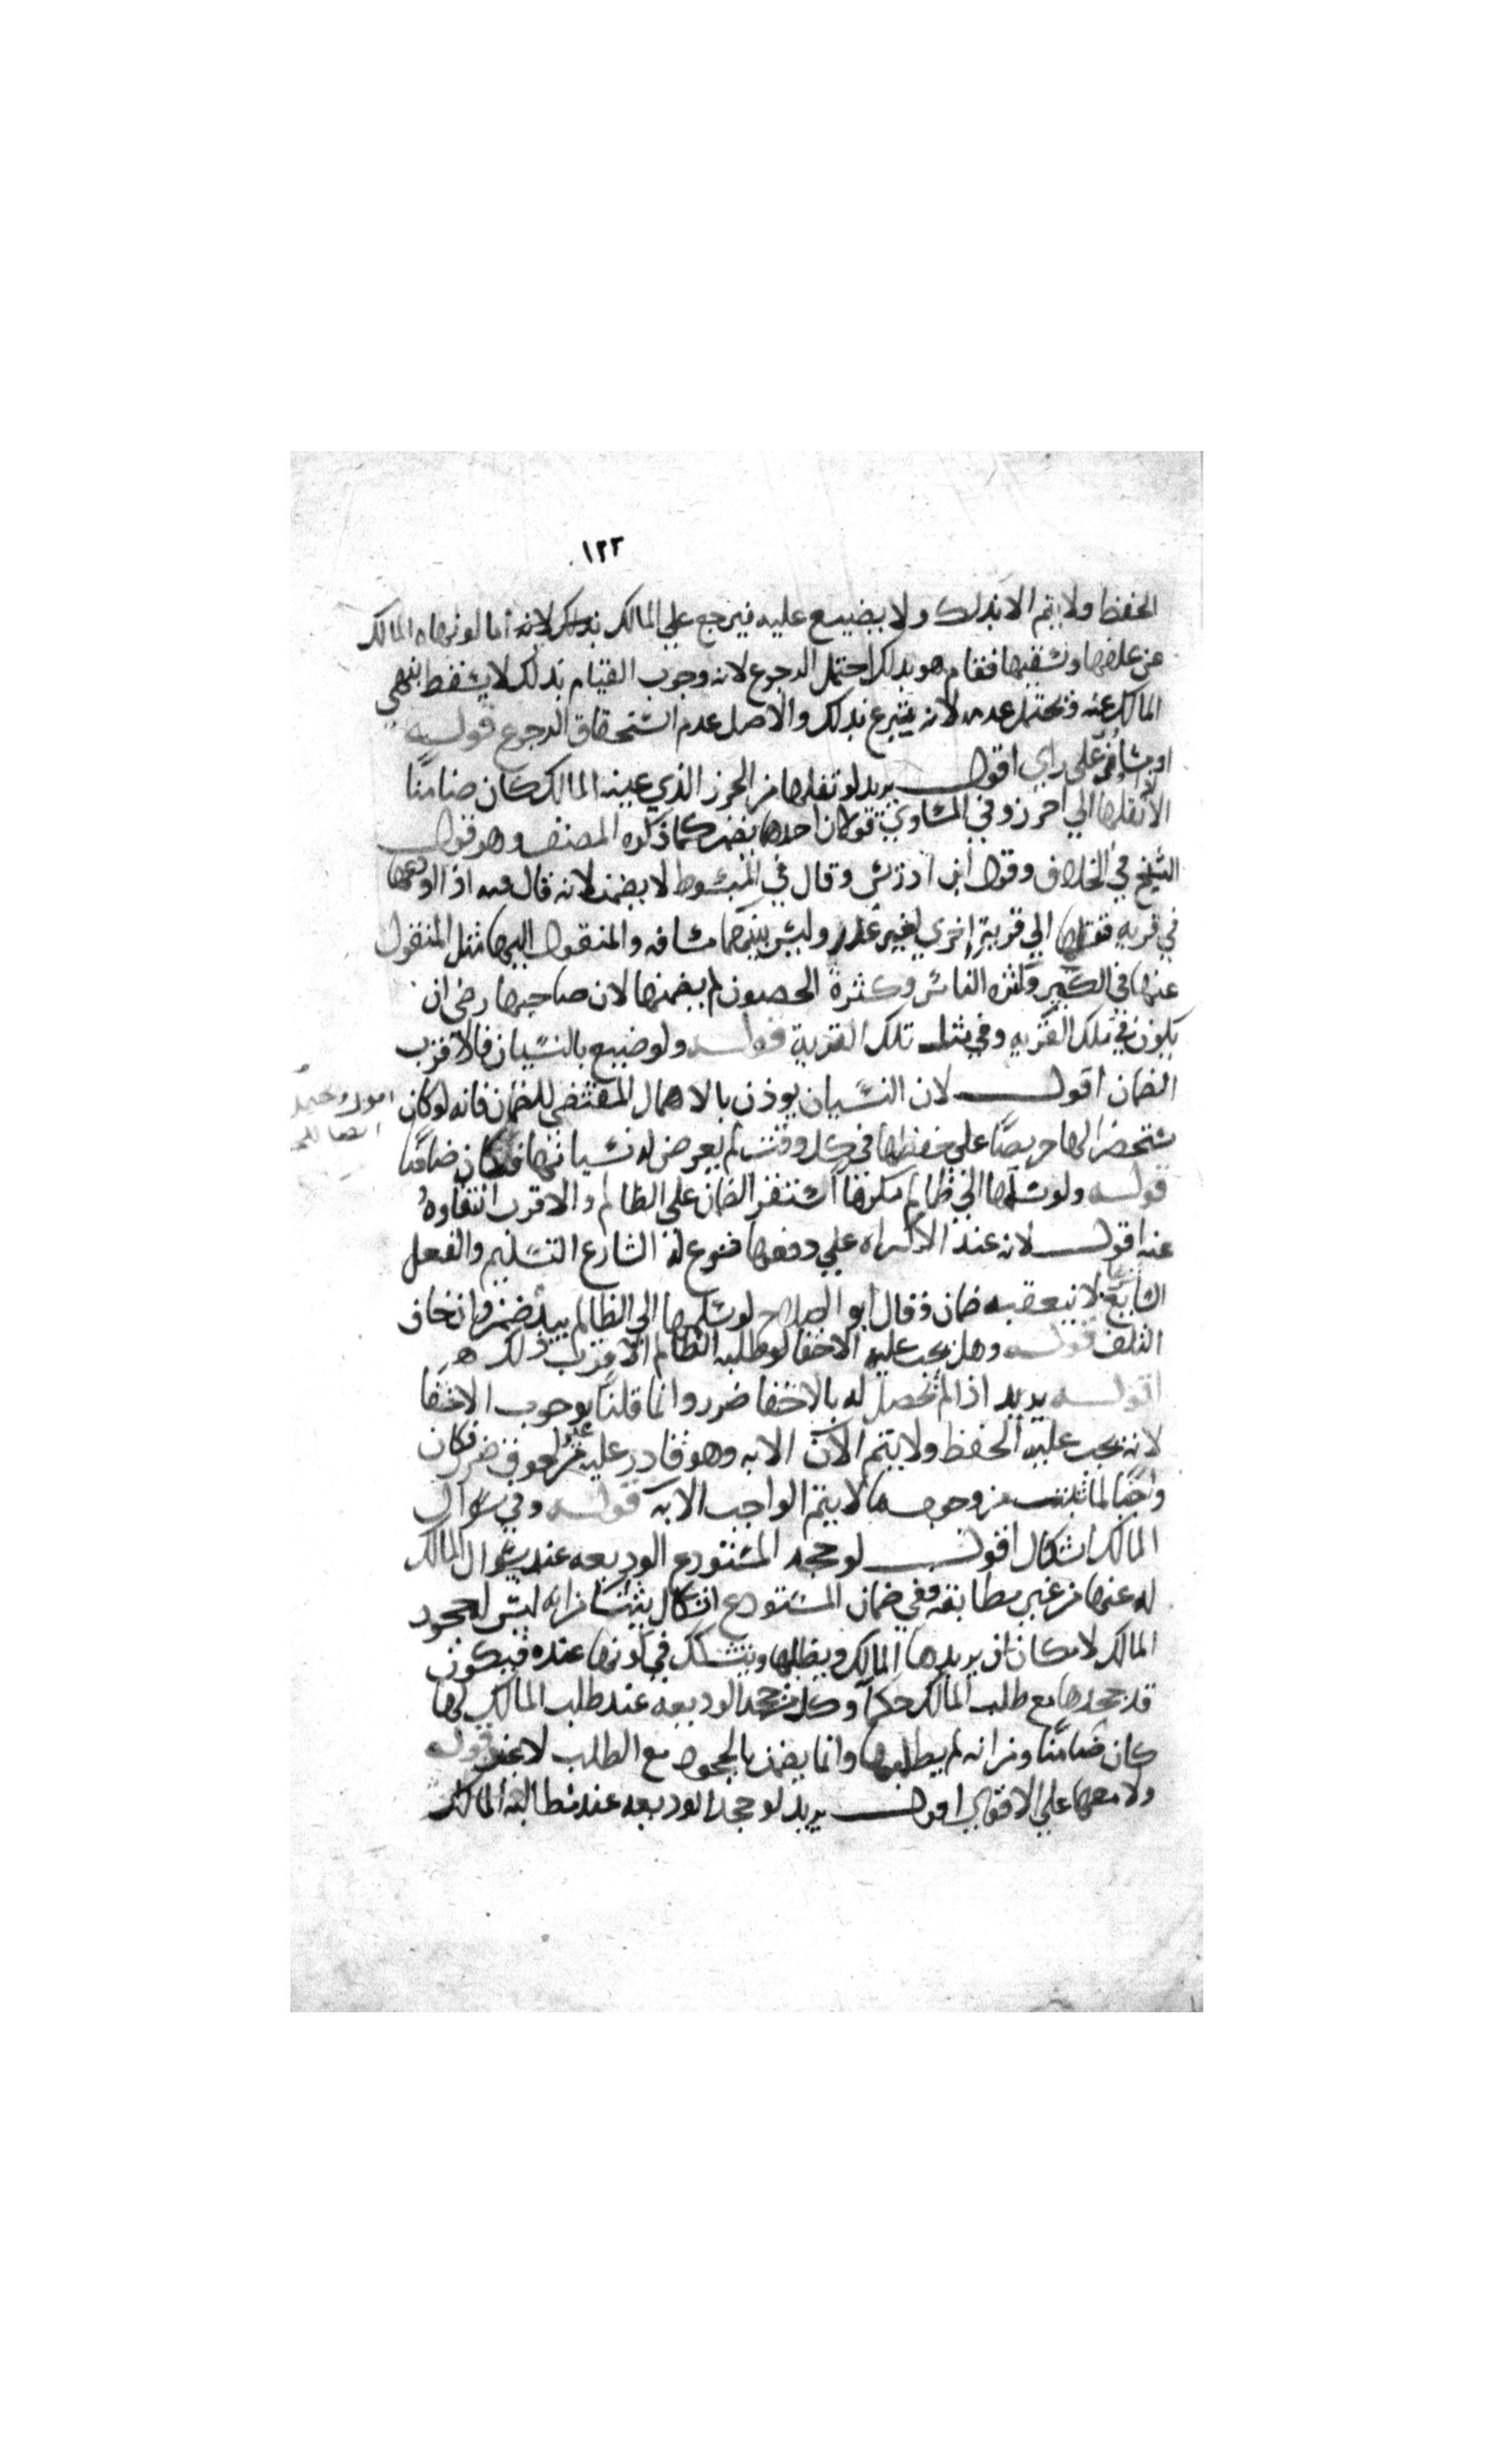 ١٢٢
الحفظ ولا يتم الا بذلك ولا يضيع عليه فيرجع علي المالك بذلك لانه اما لو نهاه المالك
عن علفها وسقيها فقام هو بذلك احتمل الرجوع لانه وجوب القيام بذلك لا يسقط بنهي
المالك عنه ويحتمل عدمه لانه تبرع بذلك والاصل عدم استحقاق الرجوع قوله
او مساو علي راي اقول يريد لو نقلها من الحرز الذي عينه المالك كان ضامنا
الا نقلها الي احرز وفي المساوي قولان احدهما يضمن كما ذكره المصنف وهو قول
الشيخ في الخلاف وقول ابن ادريس وقال في المبسوط لا يضمن لانه قال فيه اذا اودعها
في قريه فنقلها الي قرية اخري لغير عذر وليس بينهما مسافه والمنقول اليها مثل المنقول
عنها في الكبر وكثره الناس وكثرة الحصون لم يضمنها لان صاحبها رضي ان
يكون في تلك القريه وفي مثل تلك القرية قوله ولو ضيع بالنسيان فالاقرب
الضمان اقول لان النسيان يوذن بالاهمال المقتضي للضمان فانه لو كان
مستحضرا لها حريصا علي حفظها في كل وقت لم يعرض له نسيانها فكان ضامنا
قوله ولو سلمها الي ظالم مكرها استقر الضمان علي الظالم والاقرب انتفاوه
عنه اقول لانه عند الاكراه علي دفعها فسوغ له الشارع التسليم والفعل
السايغ لا يتعقبه ضمان وقال ابو الصلاح لو سلمها الي الظالم بيده ضمن وان خاف
التلف قوله وهل يجب عليه الاخفا لو طلبه الظالم الاقرب ذلك
اقول يريد اذا لم تحصل له بالاخفا ضرر وانما قلنا بوجوب الاخفا
لانه يجب عليه الحفظ ولا يتم الان الا به وهو قادر عليه من غير لحوق ضرر فكان
واجبا لما ثبت من وجوب ما لا يتم الواجب الا به قوله وفي سوال
المالك اشكال اقول لو جحد المستودع الوديعه عند سوال المالك
له عنها من غير مطالبة ففي ضمان المستودع اشكال ينشا من انه ليس لجحود
المالك لامكان ان يريدها المالك ويطلبها ويتشكك في كونها عنده فيكون
قد جحدها مع طلب المالك حكما وكل من جحد الوديعه عند طلب المالك لها
كان ضامنا ومن انه لم يطلبها وانما يضمن بالجحود مع الطلب لا عند قوله
ولا معها علي الاقوي اقول يريد لو جحد الوديعه عند مطالبة المالك